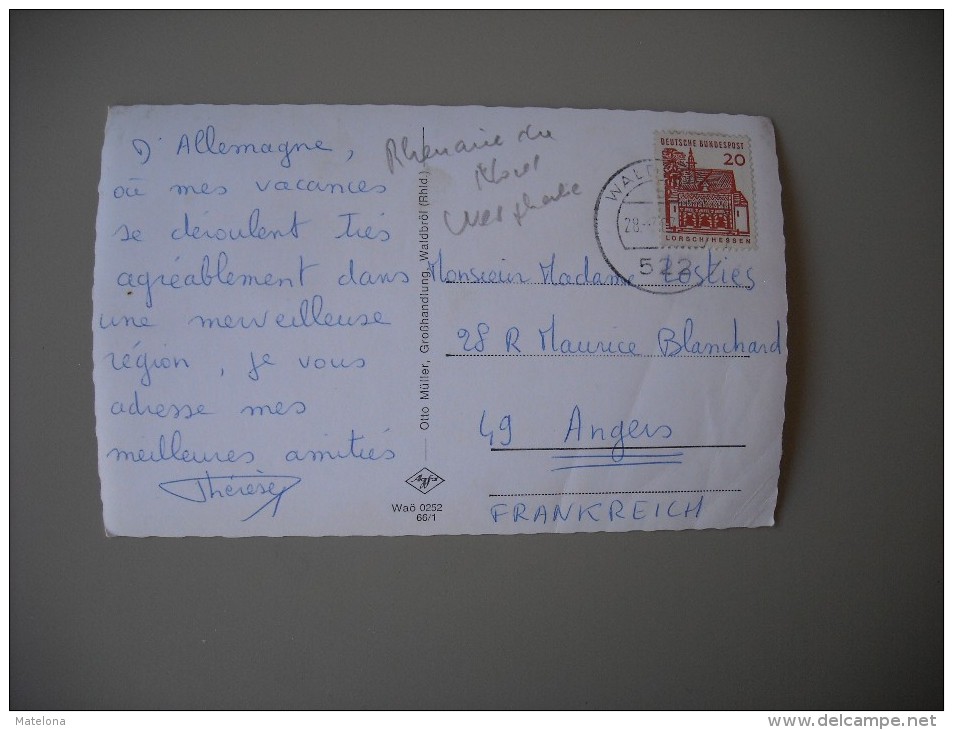 D'Allemagne,
où mes vacances
se déroulent très
agréablement dans
une merveilleuse
région, je vous
adresse mes
meilleures amitiés
Thérèse
Rhénanie du
Nord
Westphalie
Otto Müller, Großhandlung, Waldbröl (Rhld.)
Agfa
Waö 0252
66/1
DEUTSCHE BUNDESPOST
20
LORSCH/HESSEN
WALD
28.
522
Monsieur Madame Losties
28 R Maurice Blanchard
49 Angers
FRANKREICH
Matelona
www.delcampe.net